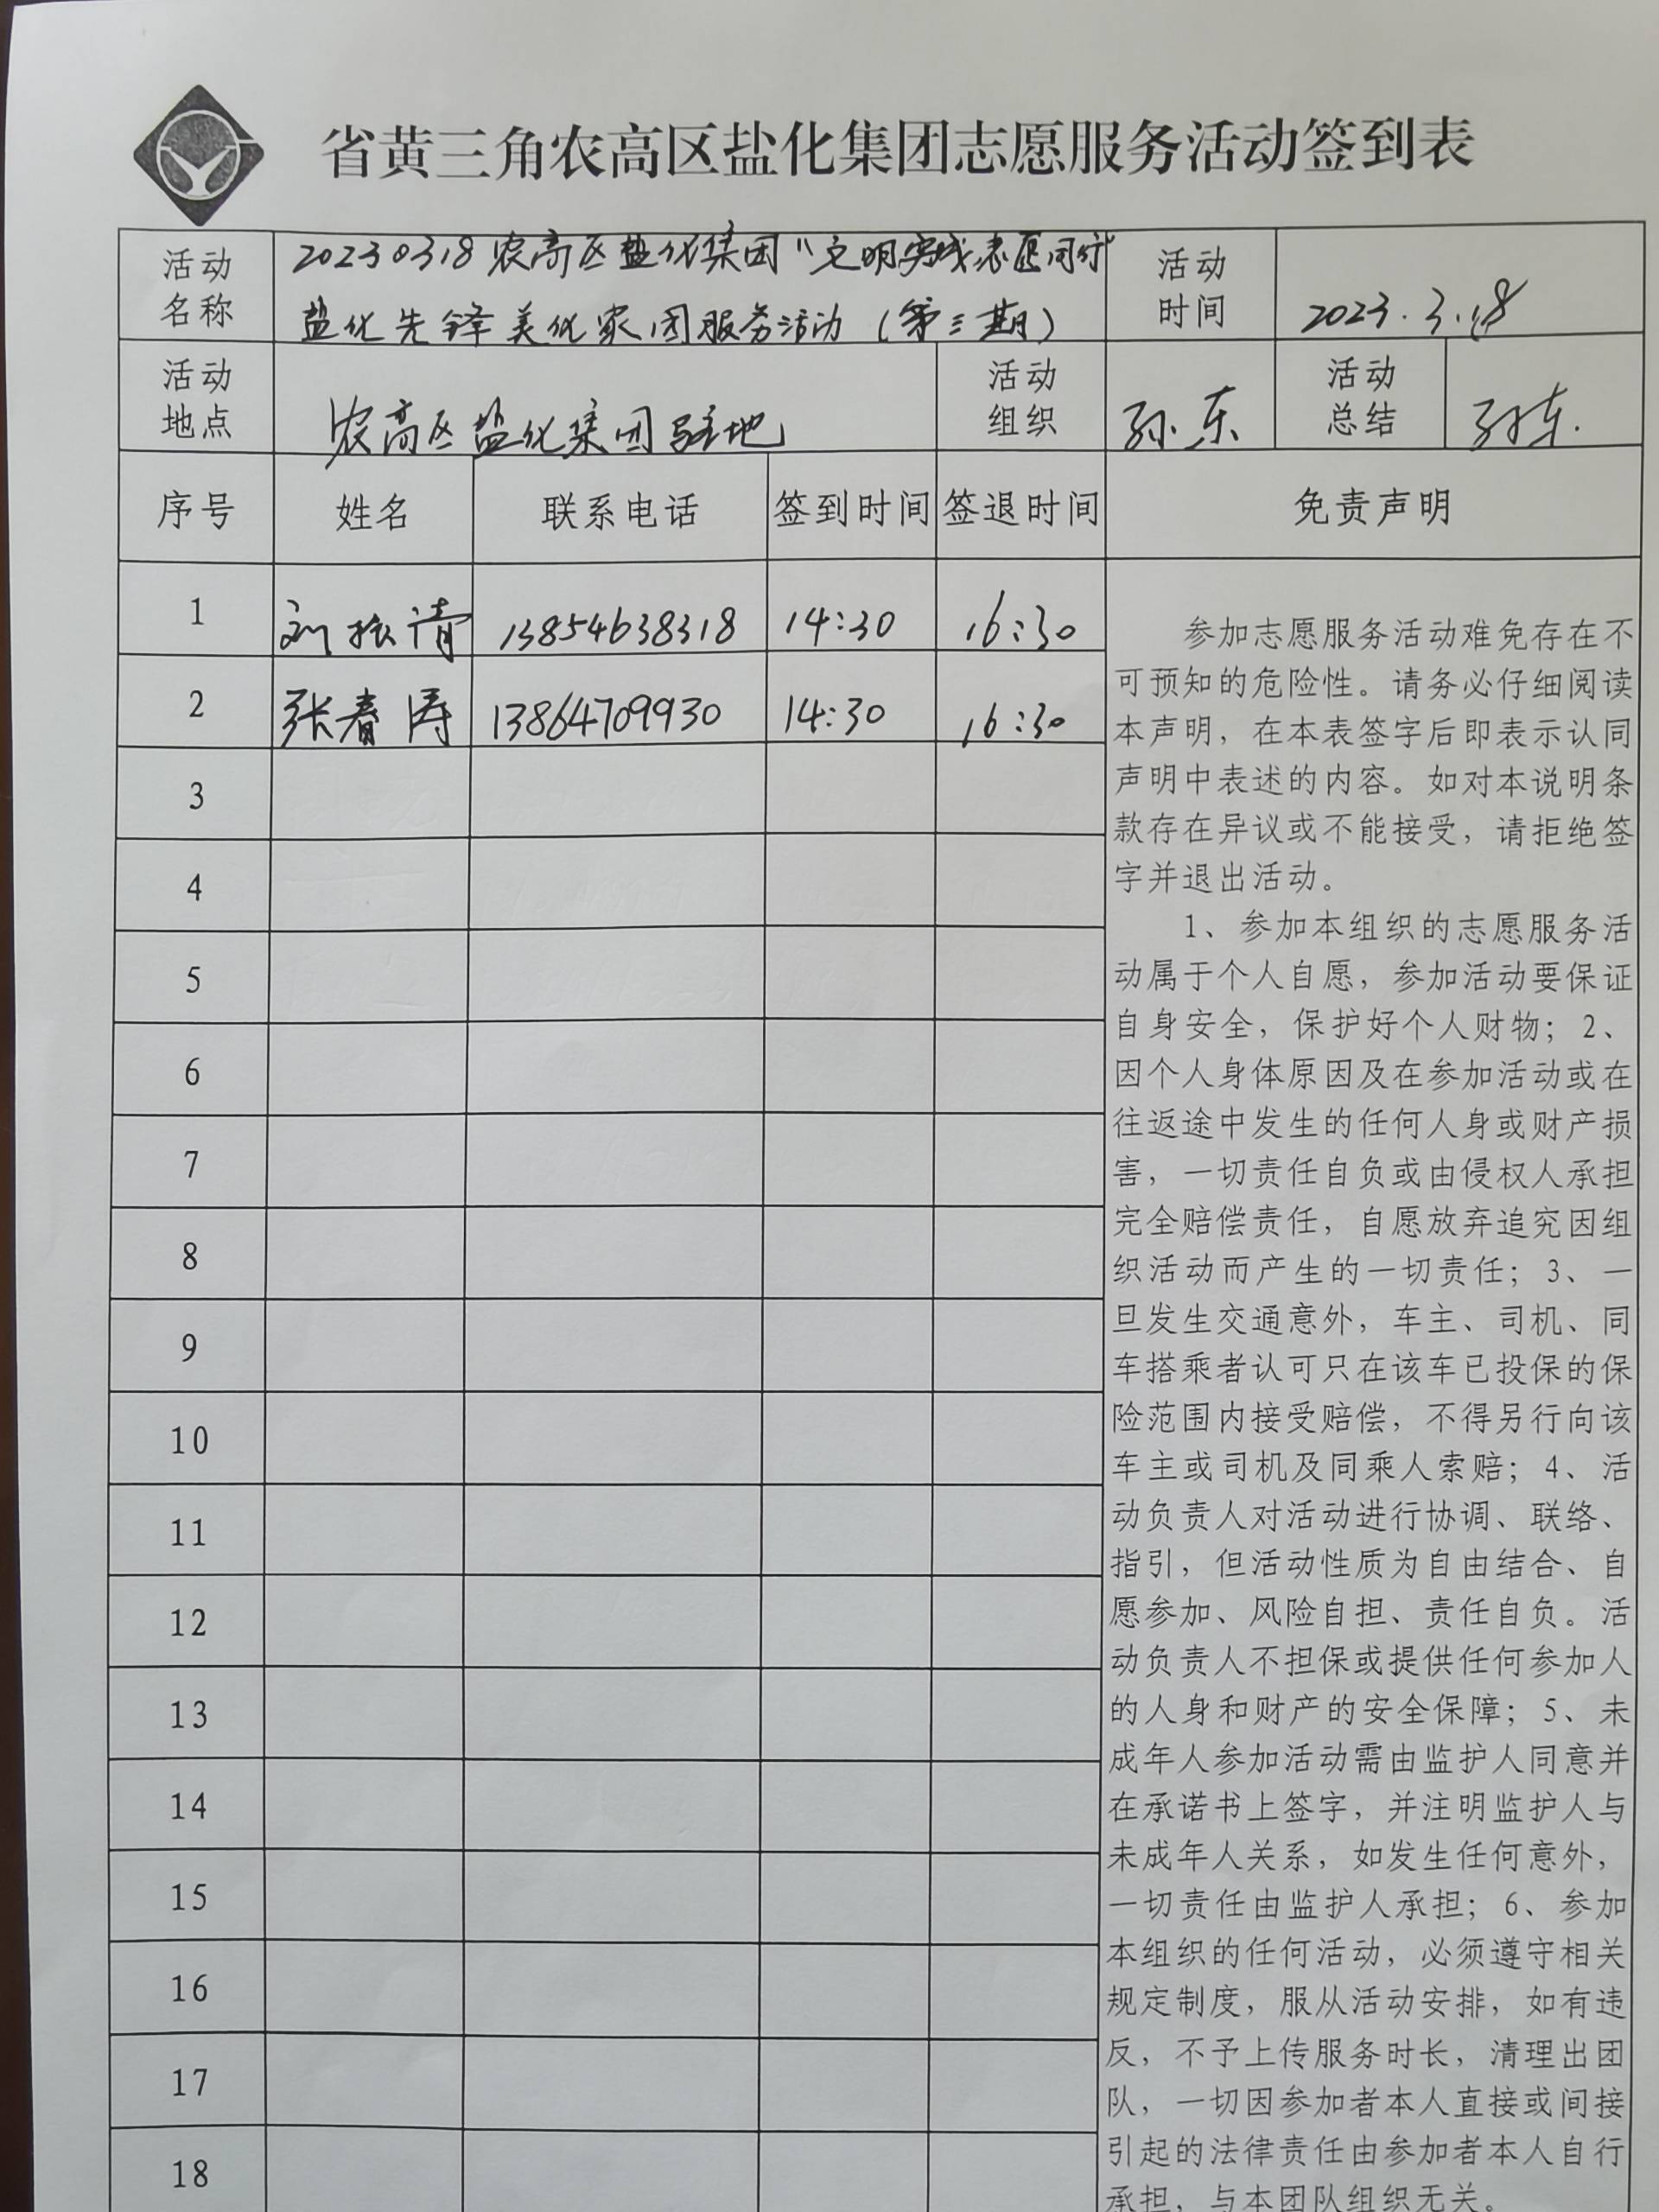 省黄三角农高区盐化集团志愿服务活动签到表
活动名称
20230318农高区盐化集团“文明实践志愿同行
盐化先锋美化家园服务活动(第三期)
活动时间
2023.3.18
活动地点
农高区盐化集团驻地
活动组织
孙东
活动总结
孙东.
序号 姓名 联系电话 签到时间 签退时间 免责声明
1 刘振清 13854638318 14:30 16:30
2 张春涛 13864709930 14:30 16:30
3
4
5
6
7
8
9
10
11
12
13
14
15
16
17
18
参加志愿服务活动难免存在不
可预知的危险性。请务必仔细阅读
本声明，在本表签字后即表示认同
声明中表述的内容。如对本说明条
款存在异议或不能接受，请拒绝签
字并退出活动。
1、参加本组织的志愿服务活
动属于个人自愿，参加活动要保证
自身安全，保护好个人财物；2、
因个人身体原因及在参加活动或在
往返途中发生的任何人身或财产损
害，一切责任自负或由侵权人承担
完全赔偿责任，自愿放弃追究因组
织活动而产生的一切责任；3、一
旦发生交通意外，车主、司机、同
车搭乘者认可只在该车已投保的保
险范围内接受赔偿，不得另行向该
车主或司机及同乘人索赔；4、活
动负责人对活动进行协调、联络、
指引，但活动性质为自由结合、自
愿参加、风险自担、责任自负。活
动负责人不担保或提供任何参加人
的人身和财产的安全保障；5、未
成年人参加活动需由监护人同意并
在承诺书上签字，并注明监护人与
未成年人关系，如发生任何意外，
一切责任由监护人承担；6、参加
本组织的任何活动，必须遵守相关
规定制度，服从活动安排，如有违
反，不予上传服务时长，清理出团
队，一切因参加者本人直接或间接
引起的法律责任由参加者本人自行
承担，与本团队组织无关。